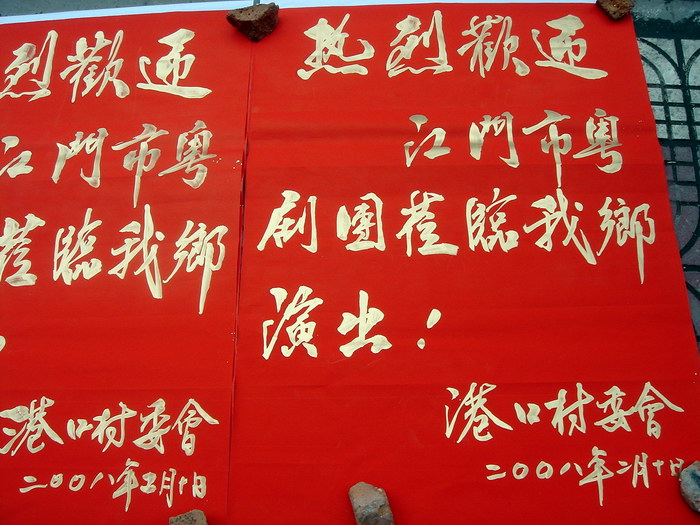 烈歡迎
江門市粵
莅臨我鄉
!
港口村委會
二〇〇八年二月十日
热烈歡迎
江門市粵
剧團莅臨我鄉
演出!
港口村委會
二〇〇八年二月十日